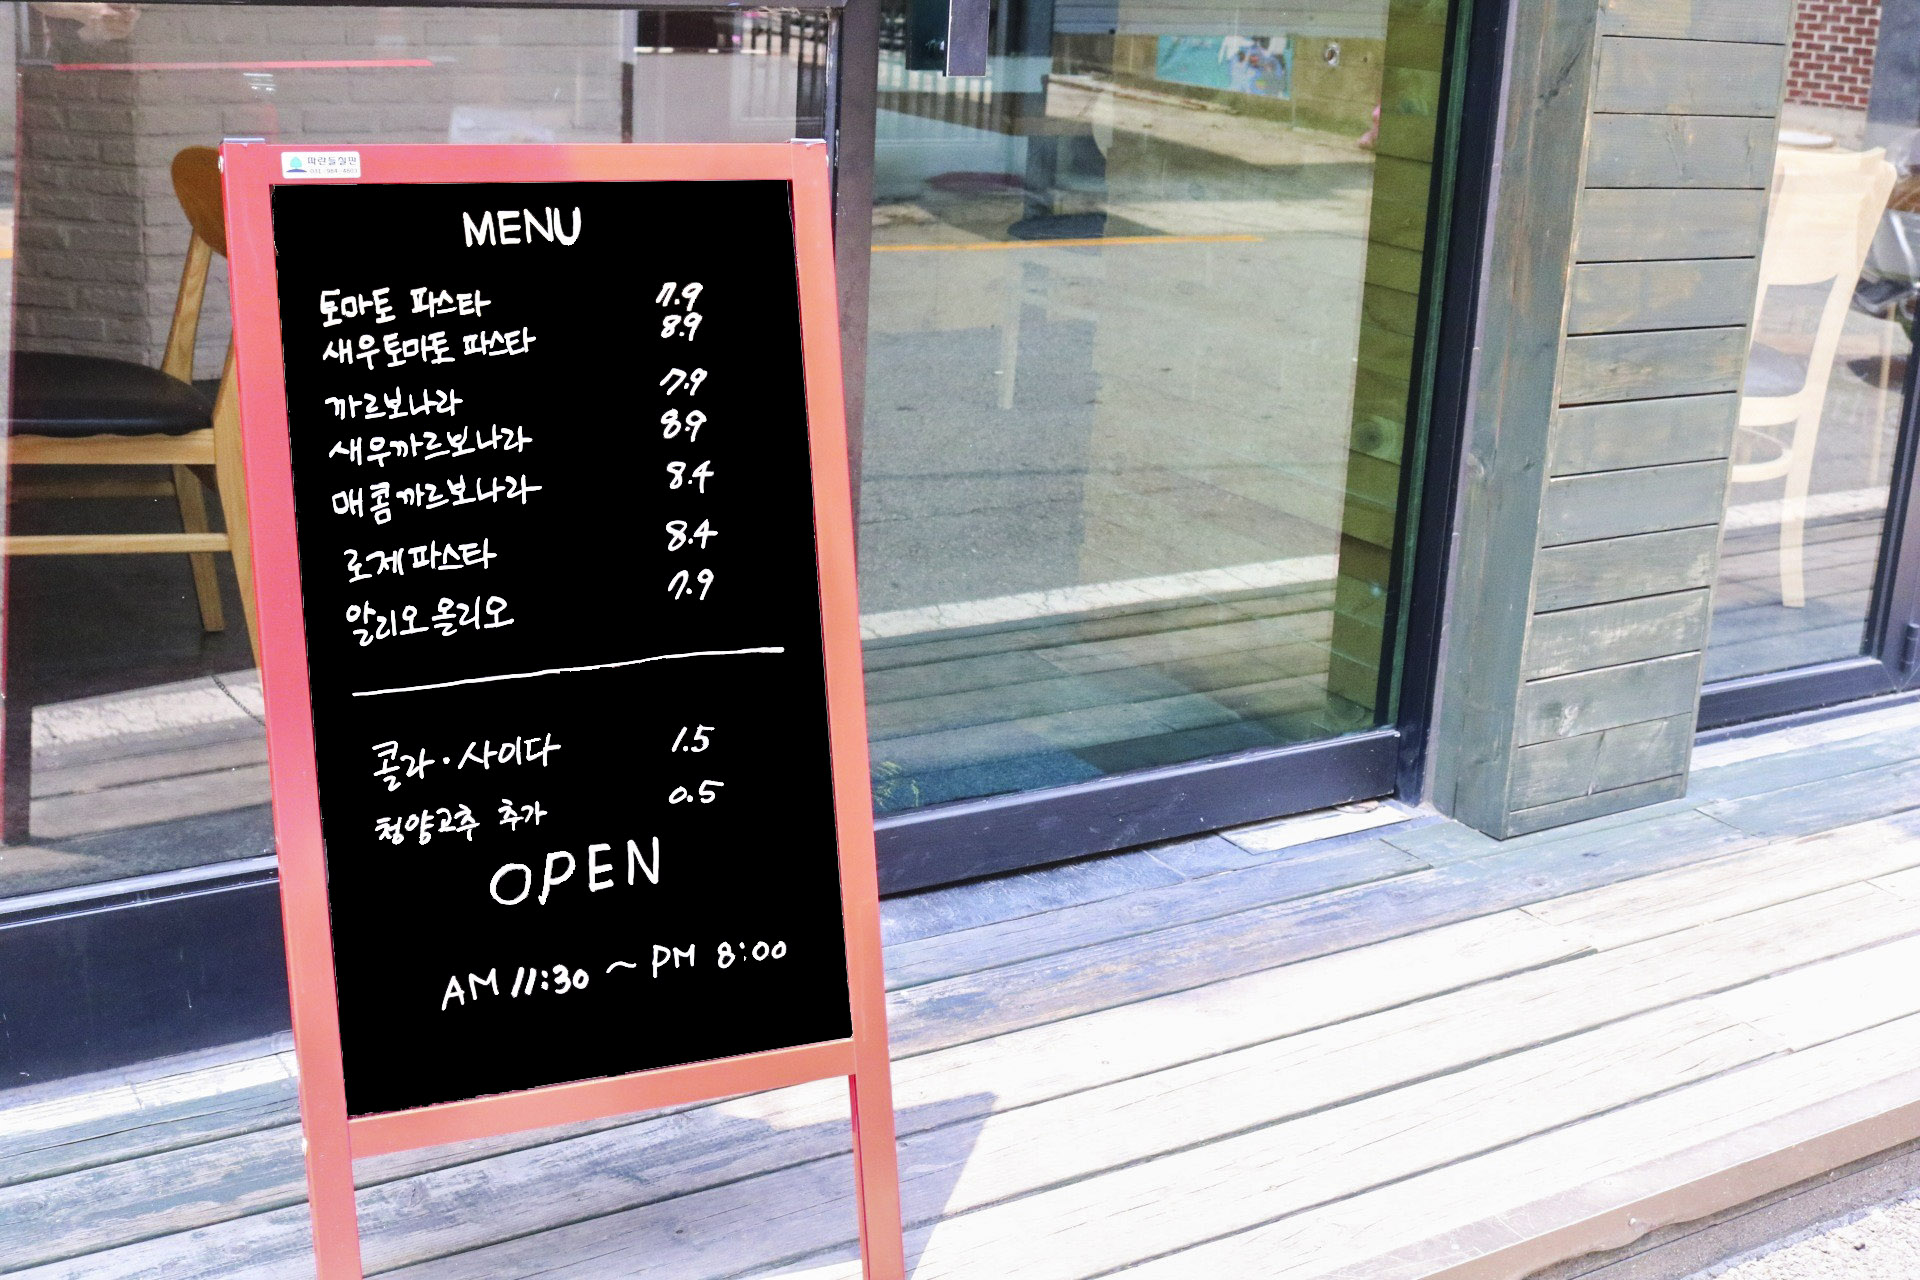 파란들실편
031-984-4603
MENU
토마토 파스타 7.9
새우토마토 파스타 8.9
까르보나라 7.9
새우까르보나라 8.9
매콤까르보나라 8.4
로제파스타 8.4
알리오올리오 7.9
콜라·사이다 1.5
청양고추 추가 0.5
OPEN
AM 11:30 ~ PM 8:00